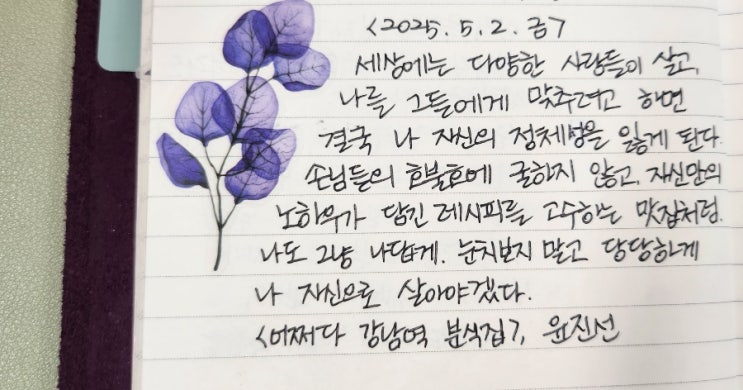 <2025. 5. 2. 금>
세상에는 다양한 사람들이 살고,
나를 그들에게 맞추려고 하면
결국 나 자신의 정체성을 잃게 된다.
손님들의 호불호에 굴하지 않고, 자신만의
노하우가 담긴 레시피를 고수하는 맛집처럼.
나도 그냥 나답게. 눈치보지 말고 당당하게
나 자신으로 살아야겠다.
<어쩌다 강남역 분식집>, 윤진선